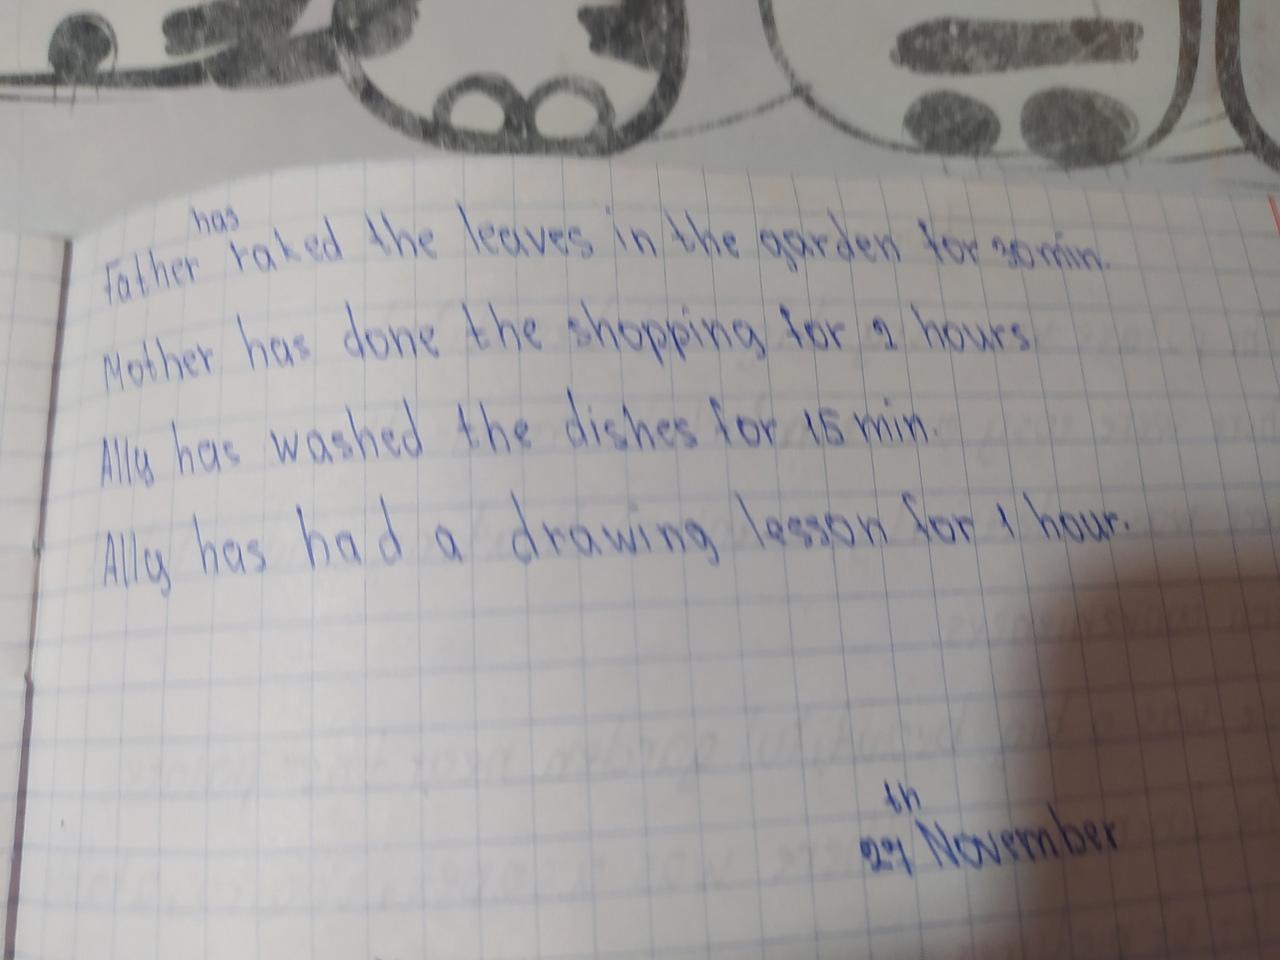 has
Father raked the leaves in the garden for 30 min.
Mother has done the shopping for 2 hours.
Ally has washed the dishes for 15 min.
Ally has had a drawing lesson for 1 hour.
th
27 November